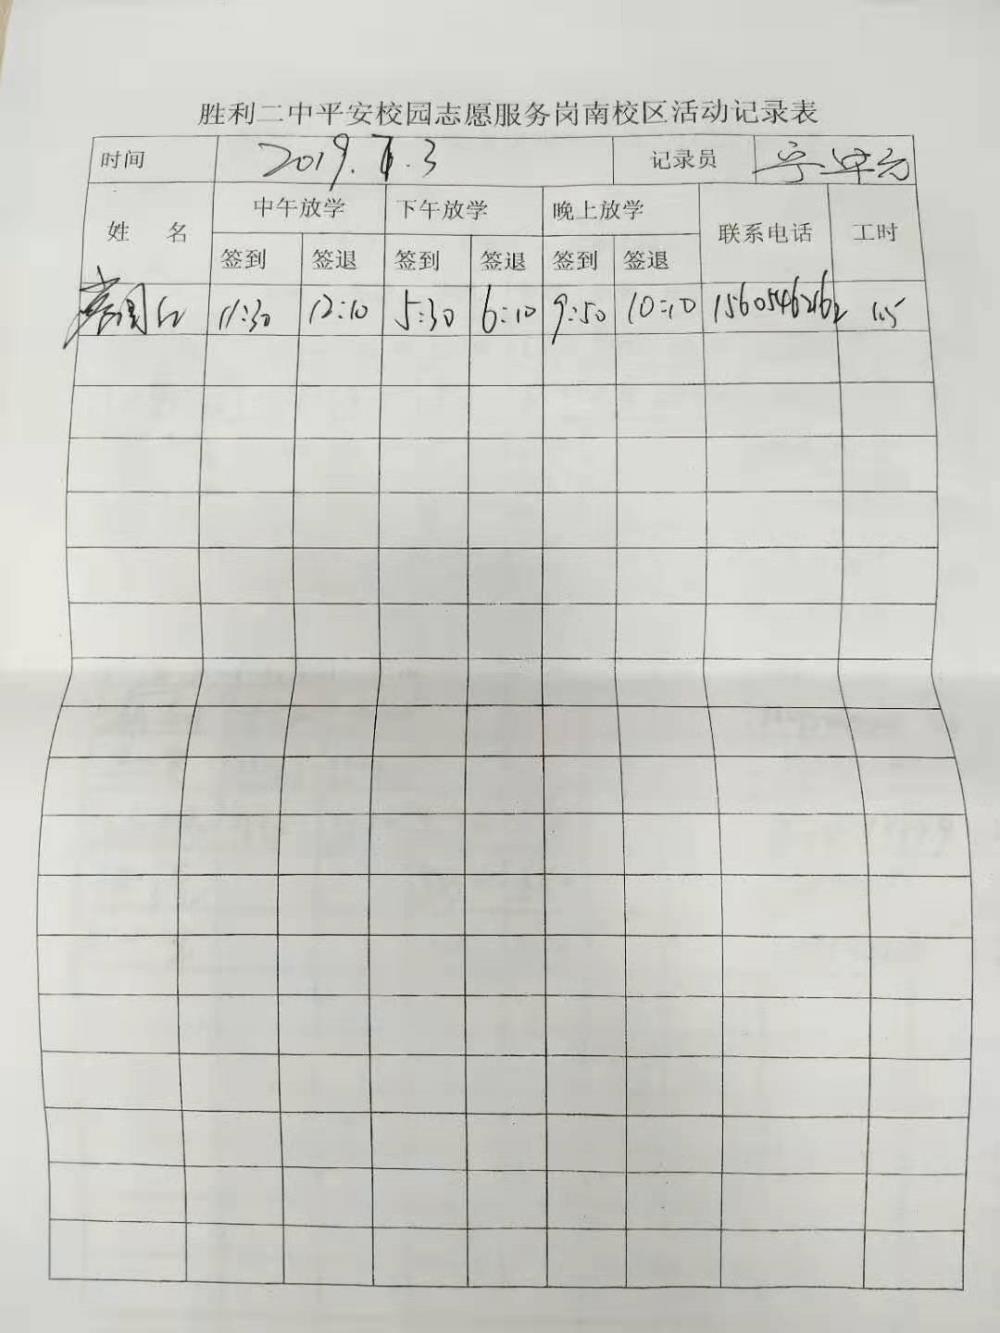 胜利二中平安校园志愿服务岗南校区活动记录表
时间 2019. .3 记录员
姓 名 中午放学 下午放学 晚上放学 联系电话 工时
签到 签退 签到 签退 签到 签退
11:30 12:10 5:30 6:10 9:50 10:10 1.5